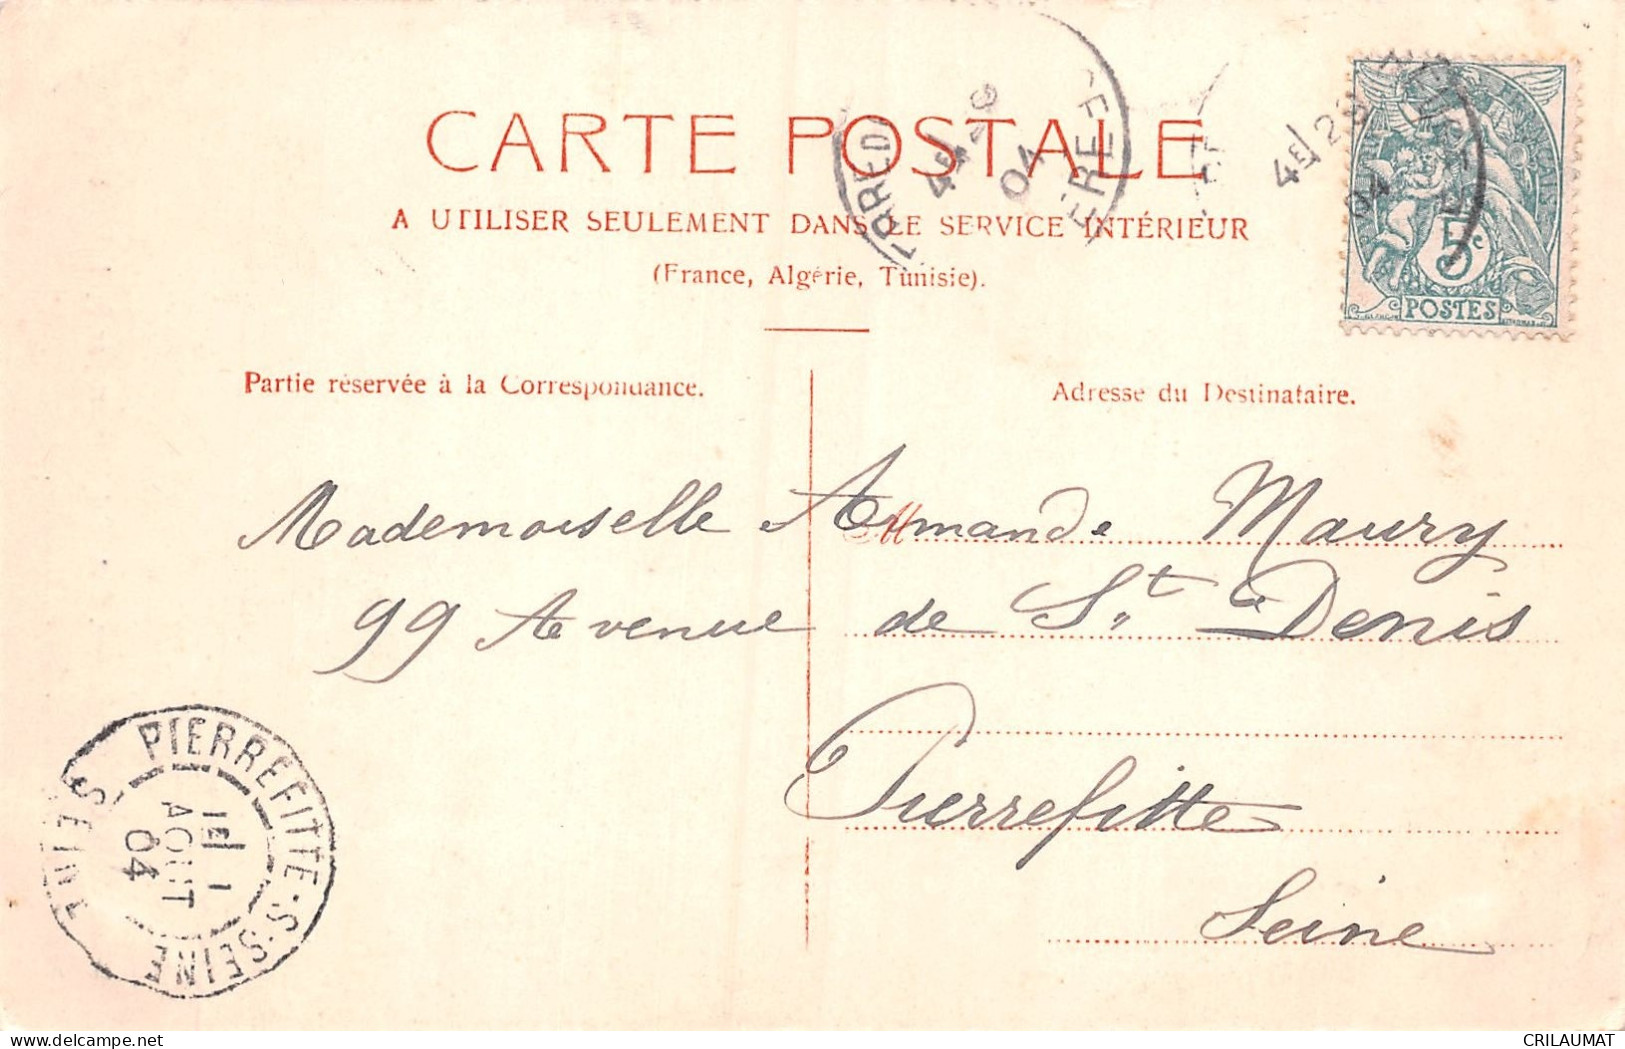 CARTE POSTALE
A UTILISER SEULEMENT DANS LE SERVICE INTÉRIEUR
(France, Algérie, Tunisie).
5c
POSTES
Partie réservée à la Correspondance.
Adresse du Destinataire.
Mademoiselle Armande Maury
99 Avenue de St Denis
Pierrefitte
Seine
PIERREFITTE-S-SEINE
SEINE
1E 1
AOUT
04
4E
04
4E 29
04
CRILAUMAT